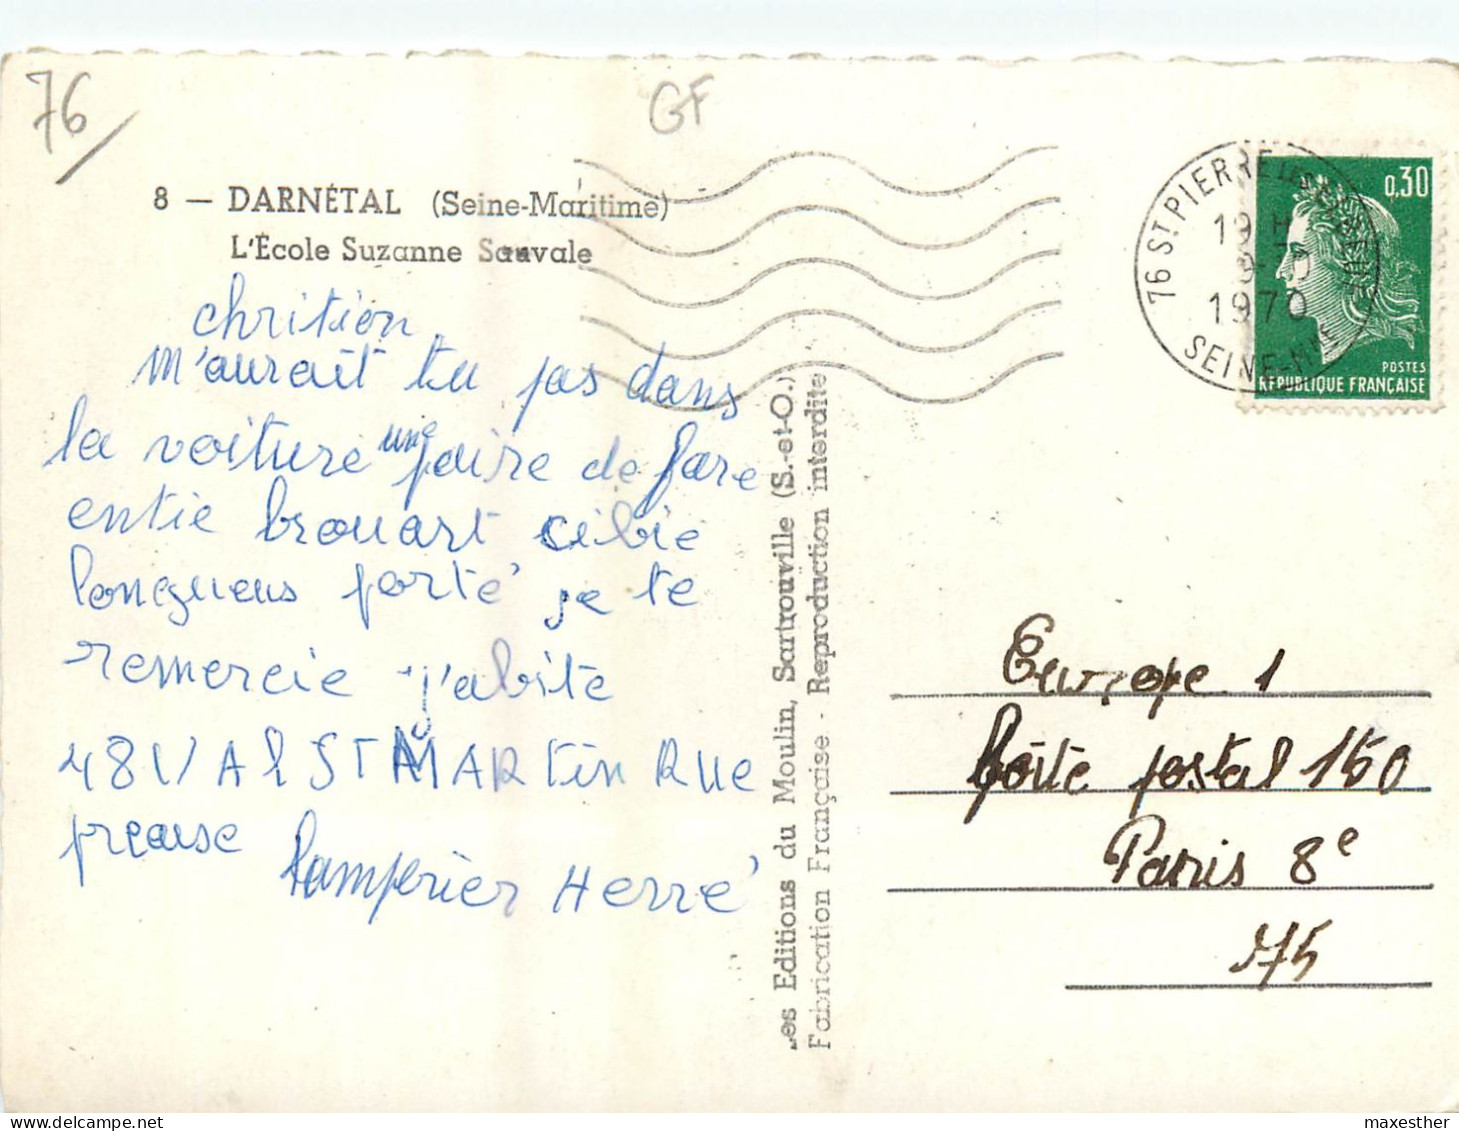 76/
GF
8 — DARNÉTAL (Seine-Maritime)
L'École Suzanne Sauvale
chritien
m'aurait tu pas dans
la voiture une paire de fare
entie brouart cibie
longueus porté je te
remercie j'abite
48 VAl ST MARtin RUe
preause
Lamperier Herré
Les Editions du Moulin, Sartrouville (S.-et-O.)
Fabrication Française - Reproduction interdite
76 ST PIERRE LES
19 H
1970
SEINE-MME
0,30
POSTES
REPUBLIQUE FRANÇAISE
Europe 1
boîte postal 150
Paris 8e
75
maxesther